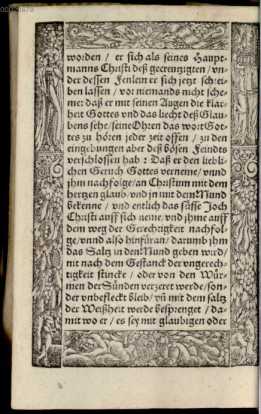 worden / er sich als seines Haupt-
manns Christi deß gecreutzigten / vn-
der dessen Fenlein er sich jetzt schrei-
ben lassen / vor niemands nicht sche-
me: daß er mit seinen Augen die klar-
heit Gottes vnd das liecht deß Glau-
bens sehe / seine Ohren das wort Got-
tes zu hören jeder zeit offen / zu den
eingebungen aber deß bösen Feindts
verschlossen hab : Daß er den liebli-
chen Geruch Gottes verneme / vnnd
jhm nachfolge / an Christum mit dem
hertzen glaub / vnd jn mit dem Mund
bekenne / vnd entlich das süsse Joch
Christi auff sich neme / vnd jhme auff
dem weg der Gerechtigkeit nachfol-
ge / vnnd also hinfüran / darumb jhm
das Saltz in den Mund geben wird /
nit nach dem Gestanck der vngerech-
tigkeit stincke / oder von den Wür-
men der Sünden verzeret werde / son-
der vnbefleckt bleib / vñ mit dem saltz
der Weißheit werde besprenget / da-
mit wo er / es sey mit glaubigen oder